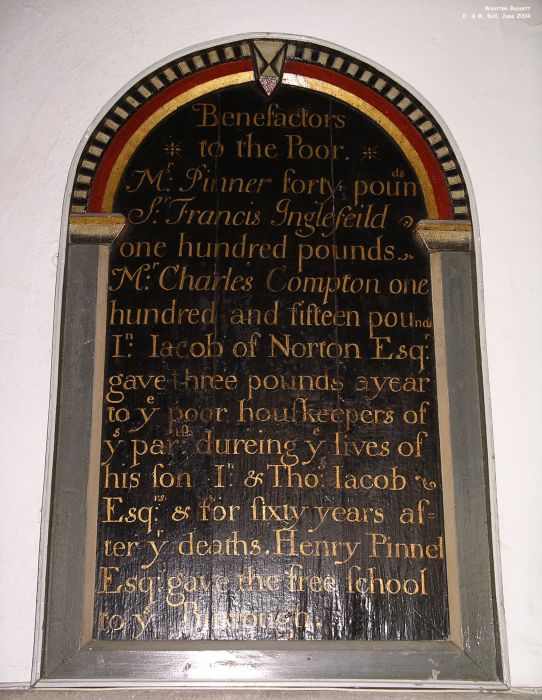 Wootton Bassett
D. & M. Ball, June 2004
Benefactors
to the Poor.
Mr. Pinner forty pounds
Sr. Francis Inglefeild
one hundred pounds.
Mr. Charles Compton one
hundred and fifteen pounds
In. Iacob of Norton Esqr.
gave three pounds a year
to ye poor houſkeepers of
ys parsh. dureing ye lives of
his ſon In. & Thos. Iacob
Esqrs. & for ſixty years af-
ter yr deaths. Henry Pinnel
Esqr. gave the free ſchool
to ys Burrough.